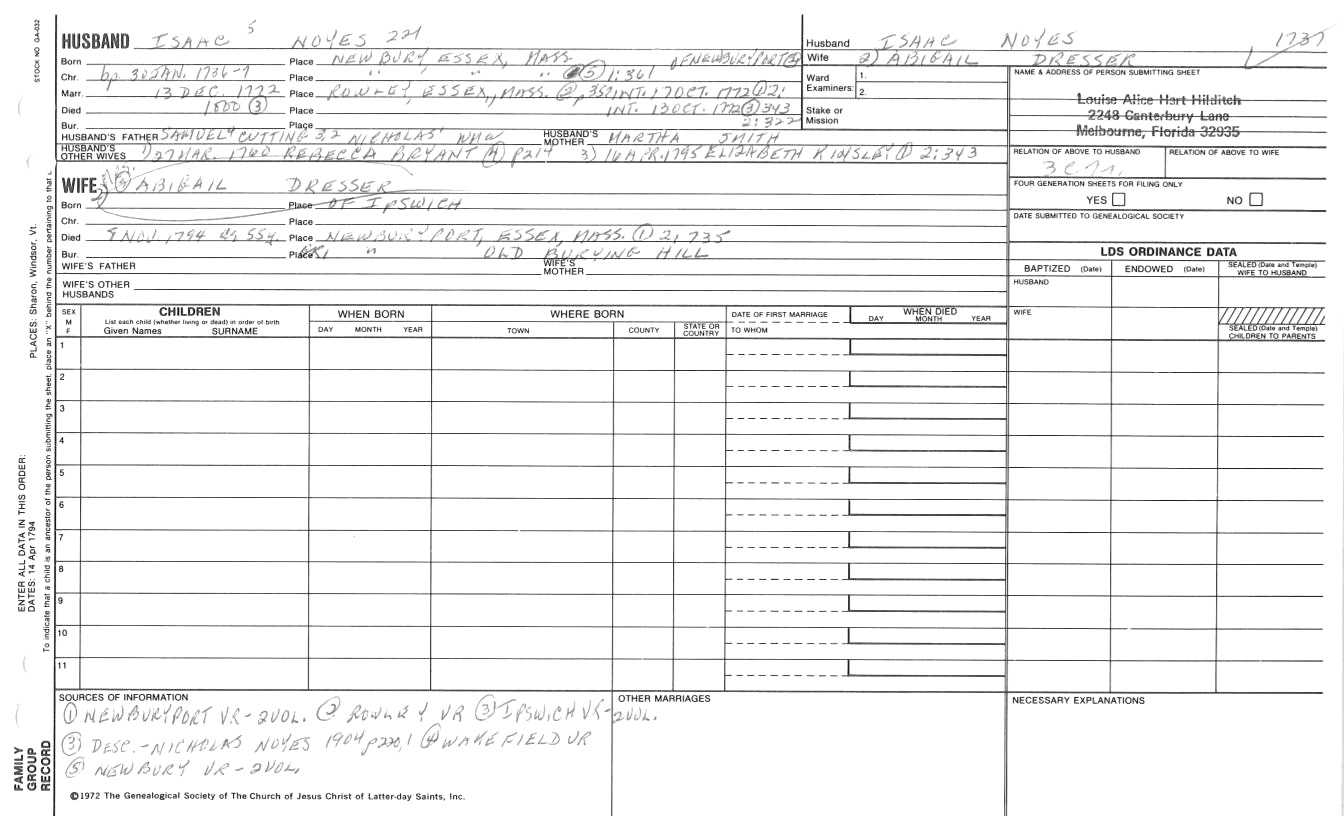 STOCK NO GA-032
HUSBAND ISAAC 5 NOYES 221
Born Place NEWBURY, ESSEX, MASS OF NEWBURYPORT
Chr. bp. 30 JAN. 1736-7 Place " " " " (5) 1:361
Marr. 13 DEC. 1772 Place ROWLEY, ESSEX, MASS. (2), 352 INT. 17 OCT. 1772 (1) 2:
Died 1800 (3) Place INT. 13 OCT. 1772 (3) 343
Bur. Place 2:322
HUSBAND'S FATHER SAMUEL4 CUTTING 3,2 NICHOLAS1 HUSBAND'S MOTHER MARTHA SMITH
HUSBAND'S OTHER WIVES 1) 27 MAR. 1760 REBECCA BRYANT (4) p214 3) 16 APR. 1795 ELIZABETH KINSLEY (1) 2:343
WIFE ABIGAIL DRESSER
Born Place OF IPSWICH
Chr. Place
Died 9 NOV 1794 ag 55y. Place NEWBURYPORT, ESSEX, MASS. (1) 2, 735
Bur. Place " OLD BURYING HILL
WIFE'S FATHER WIFE'S MOTHER
WIFE'S OTHER HUSBANDS
Husband ISAAC NOYES 1737
Wife 2) ABIGAIL DRESSER
Ward Examiners: 1.
2.
Stake or Mission
NAME & ADDRESS OF PERSON SUBMITTING SHEET
Louise Alice Hart Hilditch
2248 Canterbury Lane
Melbourne, Florida 32935
RELATION OF ABOVE TO HUSBAND RELATION OF ABOVE TO WIFE
FOUR GENERATION SHEETS FOR FILING ONLY
YES NO
DATE SUBMITTED TO GENEALOGICAL SOCIETY
LDS ORDINANCE DATA
BAPTIZED (Date) ENDOWED (Date) SEALED (Date and Temple) WIFE TO HUSBAND
HUSBAND
WIFE
SEALED (Date and Temple) CHILDREN TO PARENTS
SEX M F
CHILDREN
List each child (whether living or dead) in order of birth
Given Names SURNAME
WHEN BORN
DAY MONTH YEAR
WHERE BORN
TOWN COUNTY STATE OR COUNTRY
DATE OF FIRST MARRIAGE
TO WHOM
WHEN DIED
DAY MONTH YEAR
1
2
3
4
5
6
7
8
9
10
11
SOURCES OF INFORMATION
(1) NEWBURYPORT VR-2VOL. (2) ROWLEY VR (3) IPSWICH VR-2VOL.
(3) DESC.-NICHOLAS NOYES 1904 p220,1 (4) WAKEFIELD VR
(5) NEWBURY VR-2VOL.
OTHER MARRIAGES
NECESSARY EXPLANATIONS
©1972 The Genealogical Society of The Church of Jesus Christ of Latter-day Saints, Inc.
PLACES: Sharon, Windsor, Vt.
ENTER ALL DATA IN THIS ORDER:
DATES: 14 Apr 1794
To indicate that a child is an ancestor of the person submitting the sheet, place an "X" behind the number pertaining to that
FAMILY
GROUP
RECORD